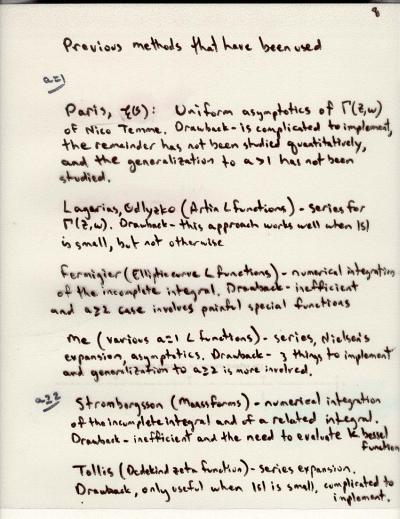 8
Previous methods that have been used
a=1
Paris, ζ(s): Uniform asymptotics of Γ(z,w)
of Nico Temme. Drawback - is complicated to implement,
the remainder has not been studied quantitatively,
and the generalization to a>1 has not been
studied.
Lagarias, Odlyzko (Artin L functions) - series for
Γ(z,w). Drawback - this approach works well when |s|
is small, but not otherwise
Fermigier (Elliptic curve L functions) - numerical integration
of the incomplete integral. Drawback - inefficient
and a≥2 case involves painful special functions
Me (various a=1 L functions) - series, Nielsen's
expansion, asymptotics. Drawback - 3 things to implement
and generalization to a≥2 is more involved.
a≥2
Strombergsson (Maass forms) - numerical integration
of the incomplete integral and of a related integral.
Drawback - inefficient and the need to evaluate K bessel
function
Tollis (Dedekind zeta function) - series expansion.
Drawback, only useful when |s| is small, complicated to
implement.